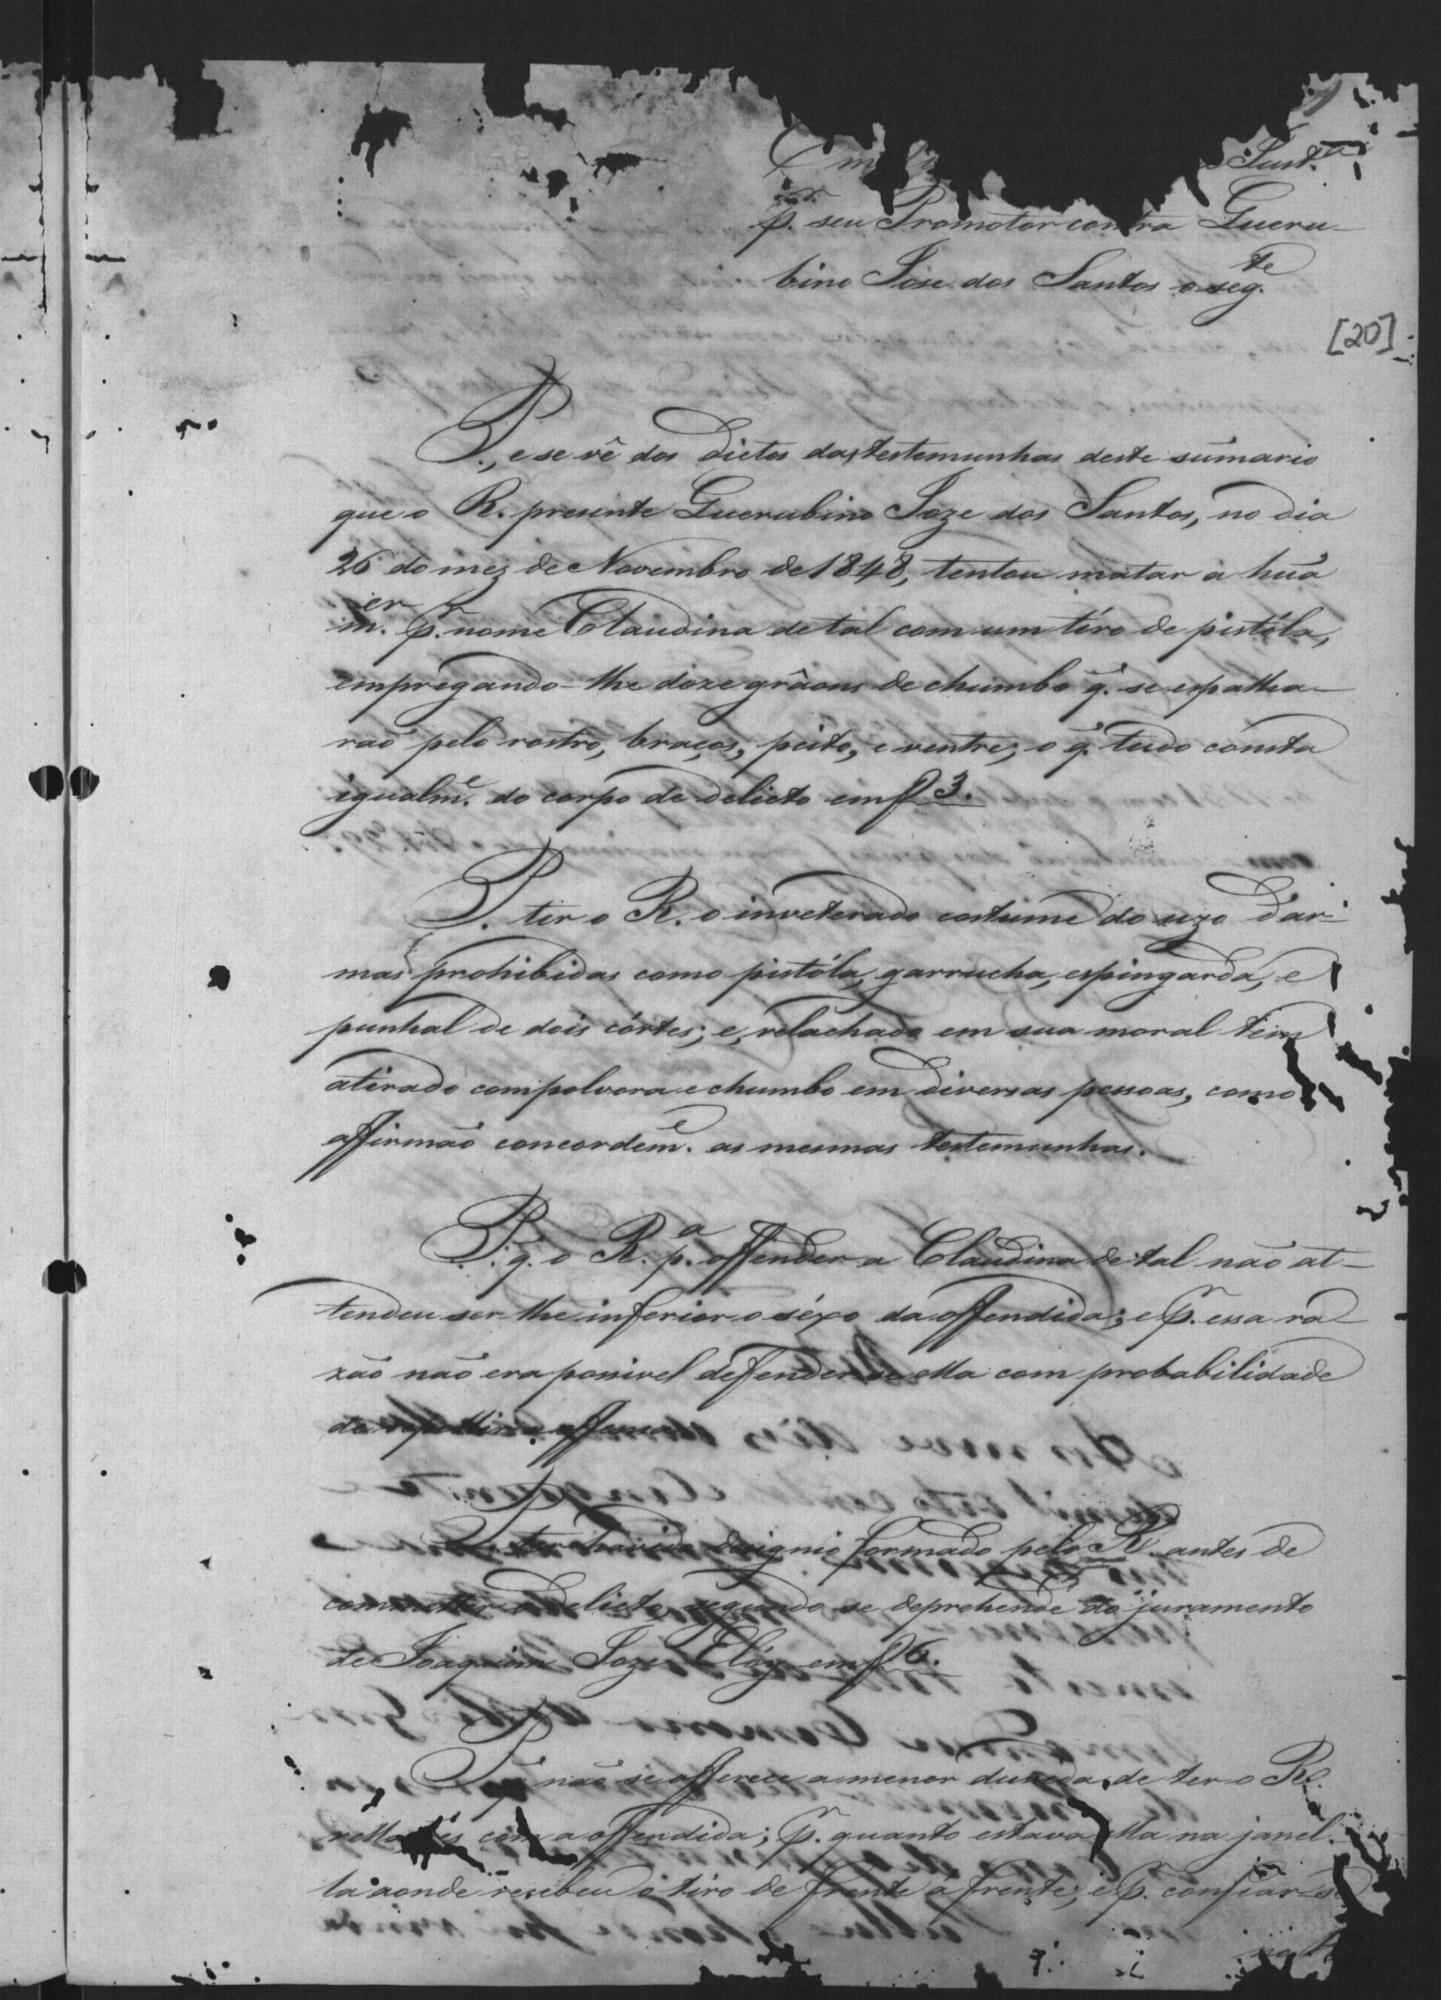 Just.ª
p.r seu Promotor contra Gueru-
bino Jose dos Santos o seg.te
[20]
P., e se vê dos dictos das testemunhas deste sumario
que o R. presente Guerubino Joze dos Santos, no dia
26 do mez de Novembro de 1848, tentou matar a huã
m.er p.r nome Claudina de tal com um tiro de pistóla,
empregando-lhe doze grâons de chumbo q. se espalha-
rão pelo rostro, braços, peito, e ventre; o q. tudo consta
igualm.e do corpo de delicto em f 3.
P. ter o R. o inveterado costume do uzo d'ar-
mas prohibidas como pistóla, garrucha, espingarda, e
punhal de dois córtes; e, relachado em sua moral tem
atirado com polvora e chumbo em diversas pessoas, como
affirmão concordem.e as mesmas testemunhas.
P. q. o R. p.a offender a Claudina de tal não at-
tendeu ser-lhe inferior o séxo da offendida; e p.r essa ra-
zão não era possivel defender-se ella com probabilidade
de repellir a offensa.
P. ter havido designio formado pelo R. antes de
commetter o delicto, segundo se deprehende do juramento
de Joaquim Joze Elóy em f 6.
P. q. não se offerece a menor duvida de ter o R.
com a offendida; p.r quanto estava ella na janel-
la aonde recebeu o tiro de frente á frente, e p.r confiar-se